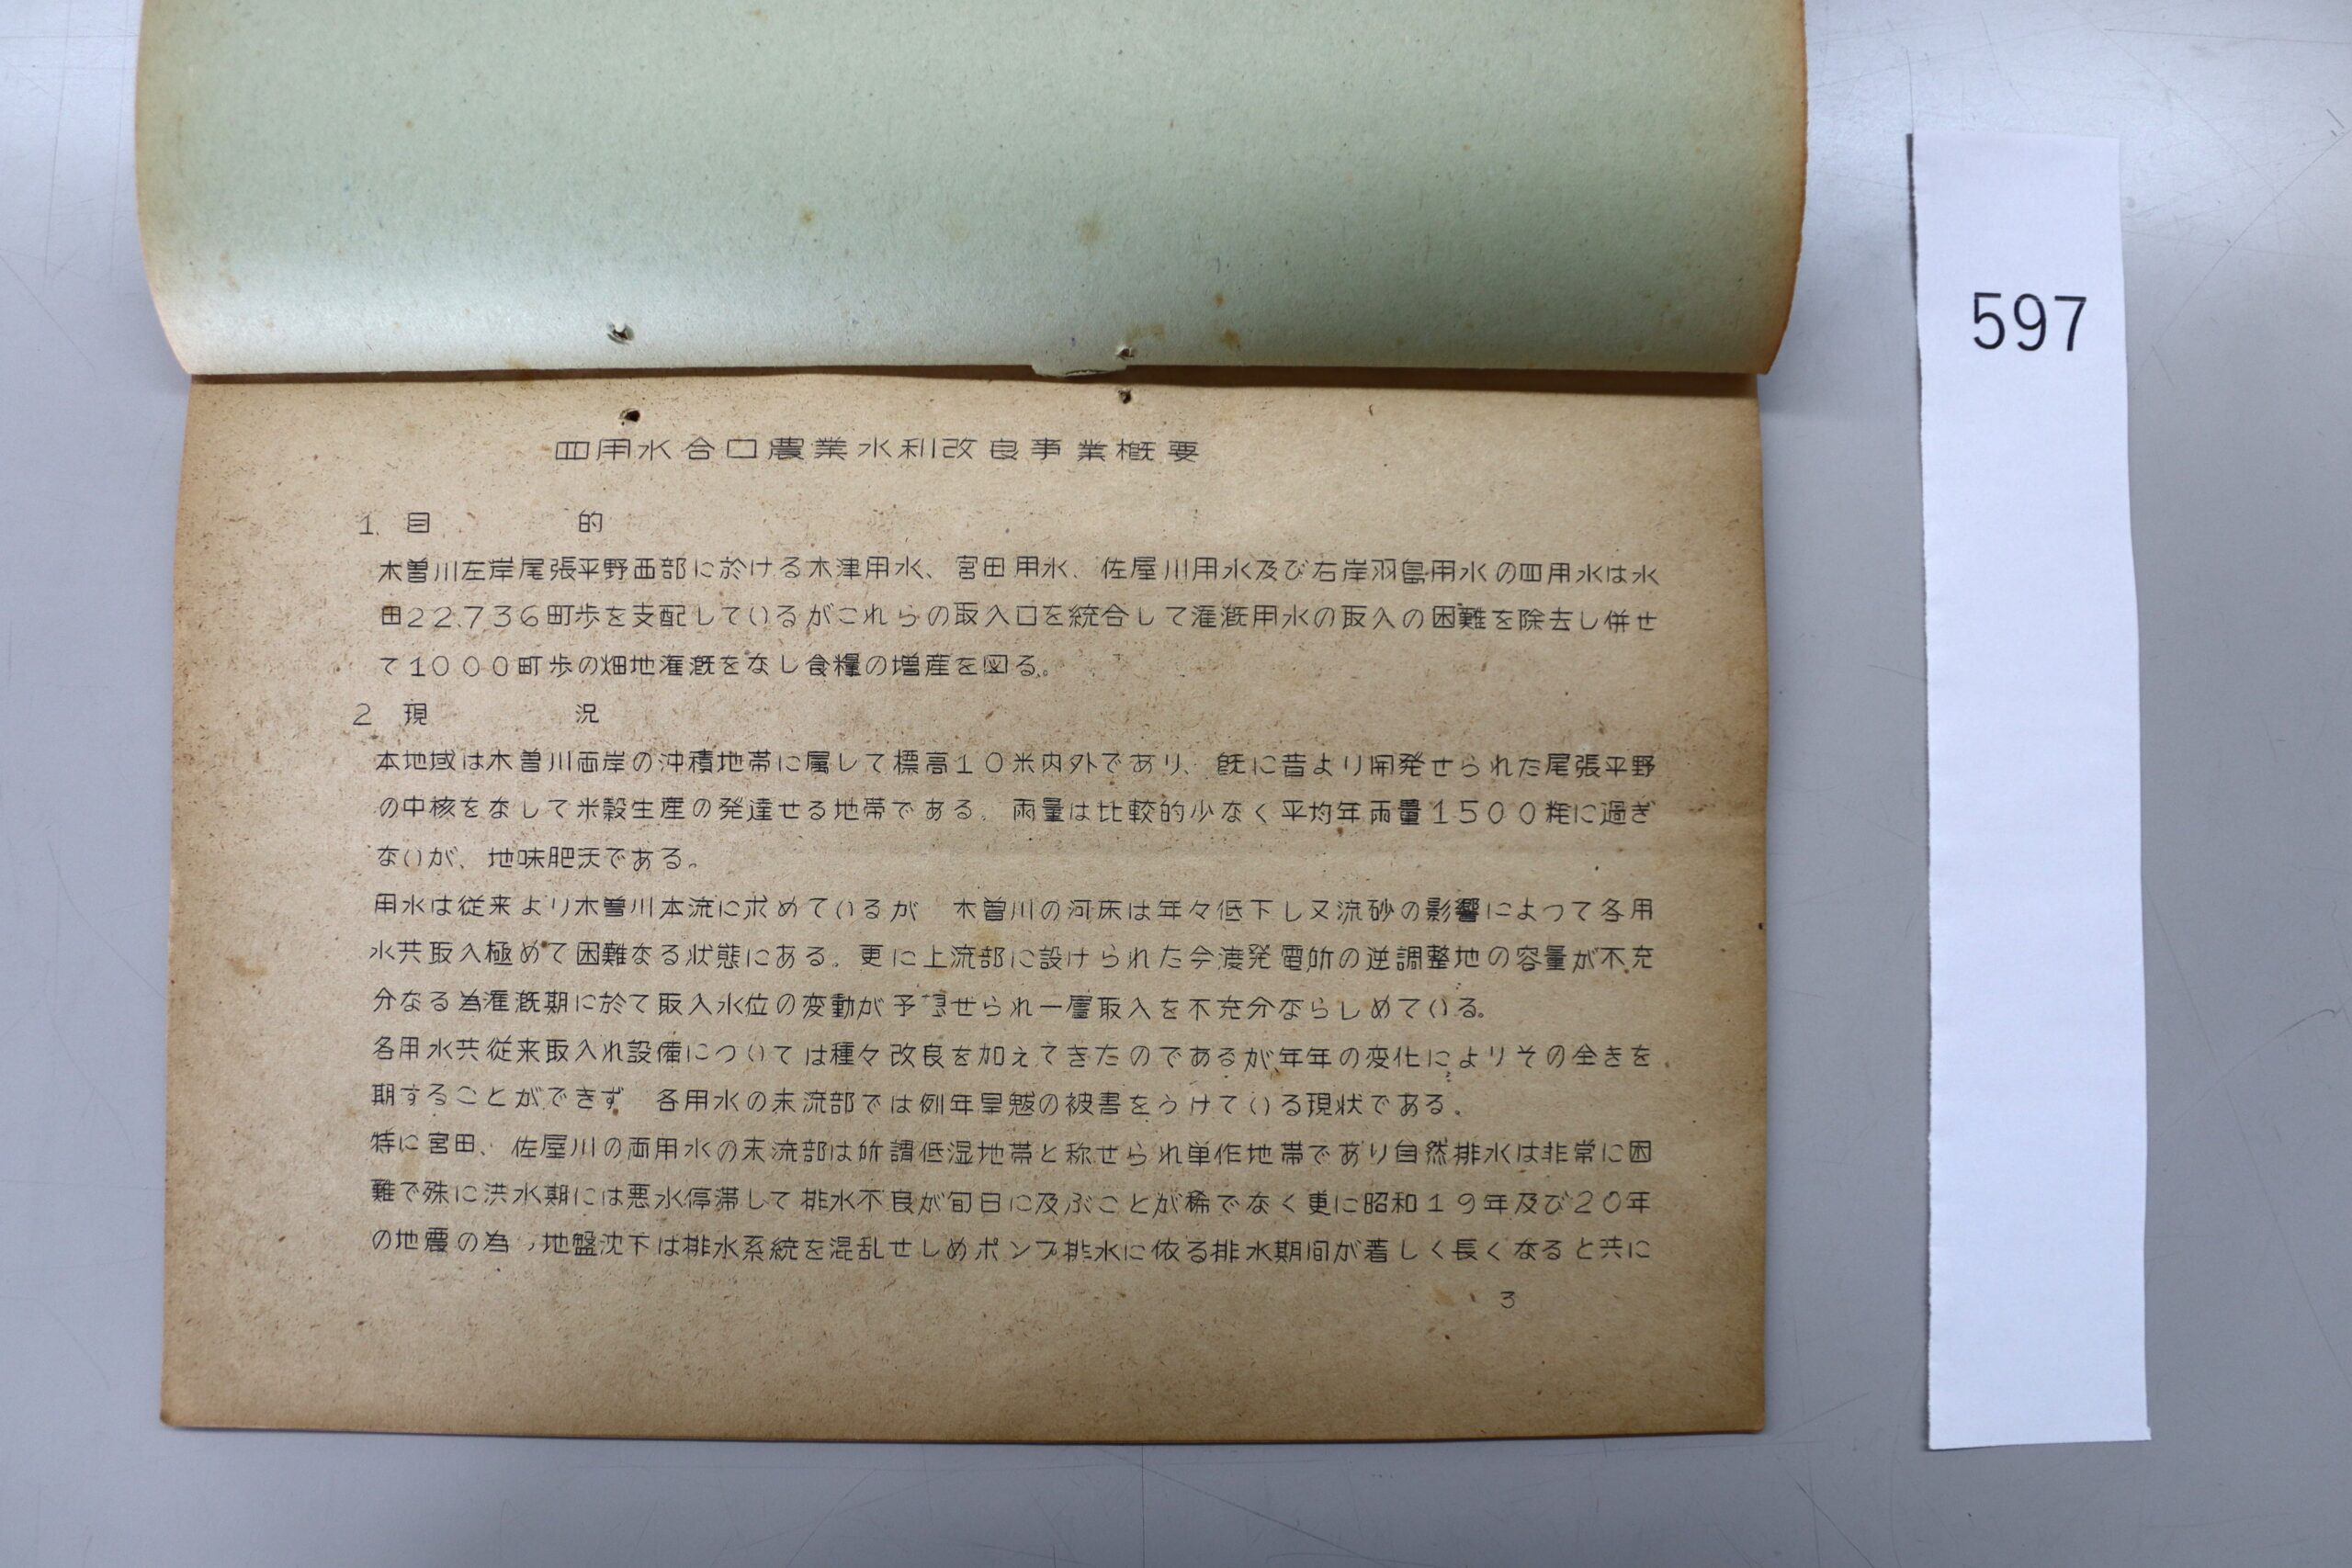 四用水合口農業水利改良事業概要
1. 目 的
木曽川左岸尾張平野西部に於ける木津用水、宮田用水、佐屋川用水及び右岸羽島用水の四用水は水
田22,736町歩を支配しているがこれらの取入口を統合して灌漑用水の取入の困難を除去し併せ
て1000町歩の畑地灌漑をなし食糧の増産を図る。
2 現 況
本地域は木曽川両岸の沖積地帯に属して標高10米内外であり、既に昔より開発せられた尾張平野
の中核をなして米穀生産の発達せる地帯である。雨量は比較的少なく平均年雨量1500粍に過ぎ
ないが、地味肥沃である。
用水は従来より木曽川本流に求めているが 木曽川の河床は年々低下し又流砂の影響によつて各用
水共取入極めて困難なる状態にある。更に上流部に設けられた今渡発電所の逆調整地の容量が不充
分なる為灌漑期に於て取入水位の変動が予 せられ一層取入を不充分ならしめている。
各用水共従来取入れ設備については種々改良を加えてきたのであるが、年年の変化によりその全きを
期することができず 各用水の末流部では例年旱魃の被害をうけている現状である。
特に宮田、佐屋川の両用水の末流部は所謂低湿地帯と称せられ単作地帯であり自然排水は非常に困
難で殊に洪水期には悪水停滞して排水不良が旬日に及ぶことが稀でなく更に昭和19年及び20年
の地震の為、地盤沈下は排水系統を混乱せしめポンプ排水に依る排水期間が著しく長くなると共に
3
597